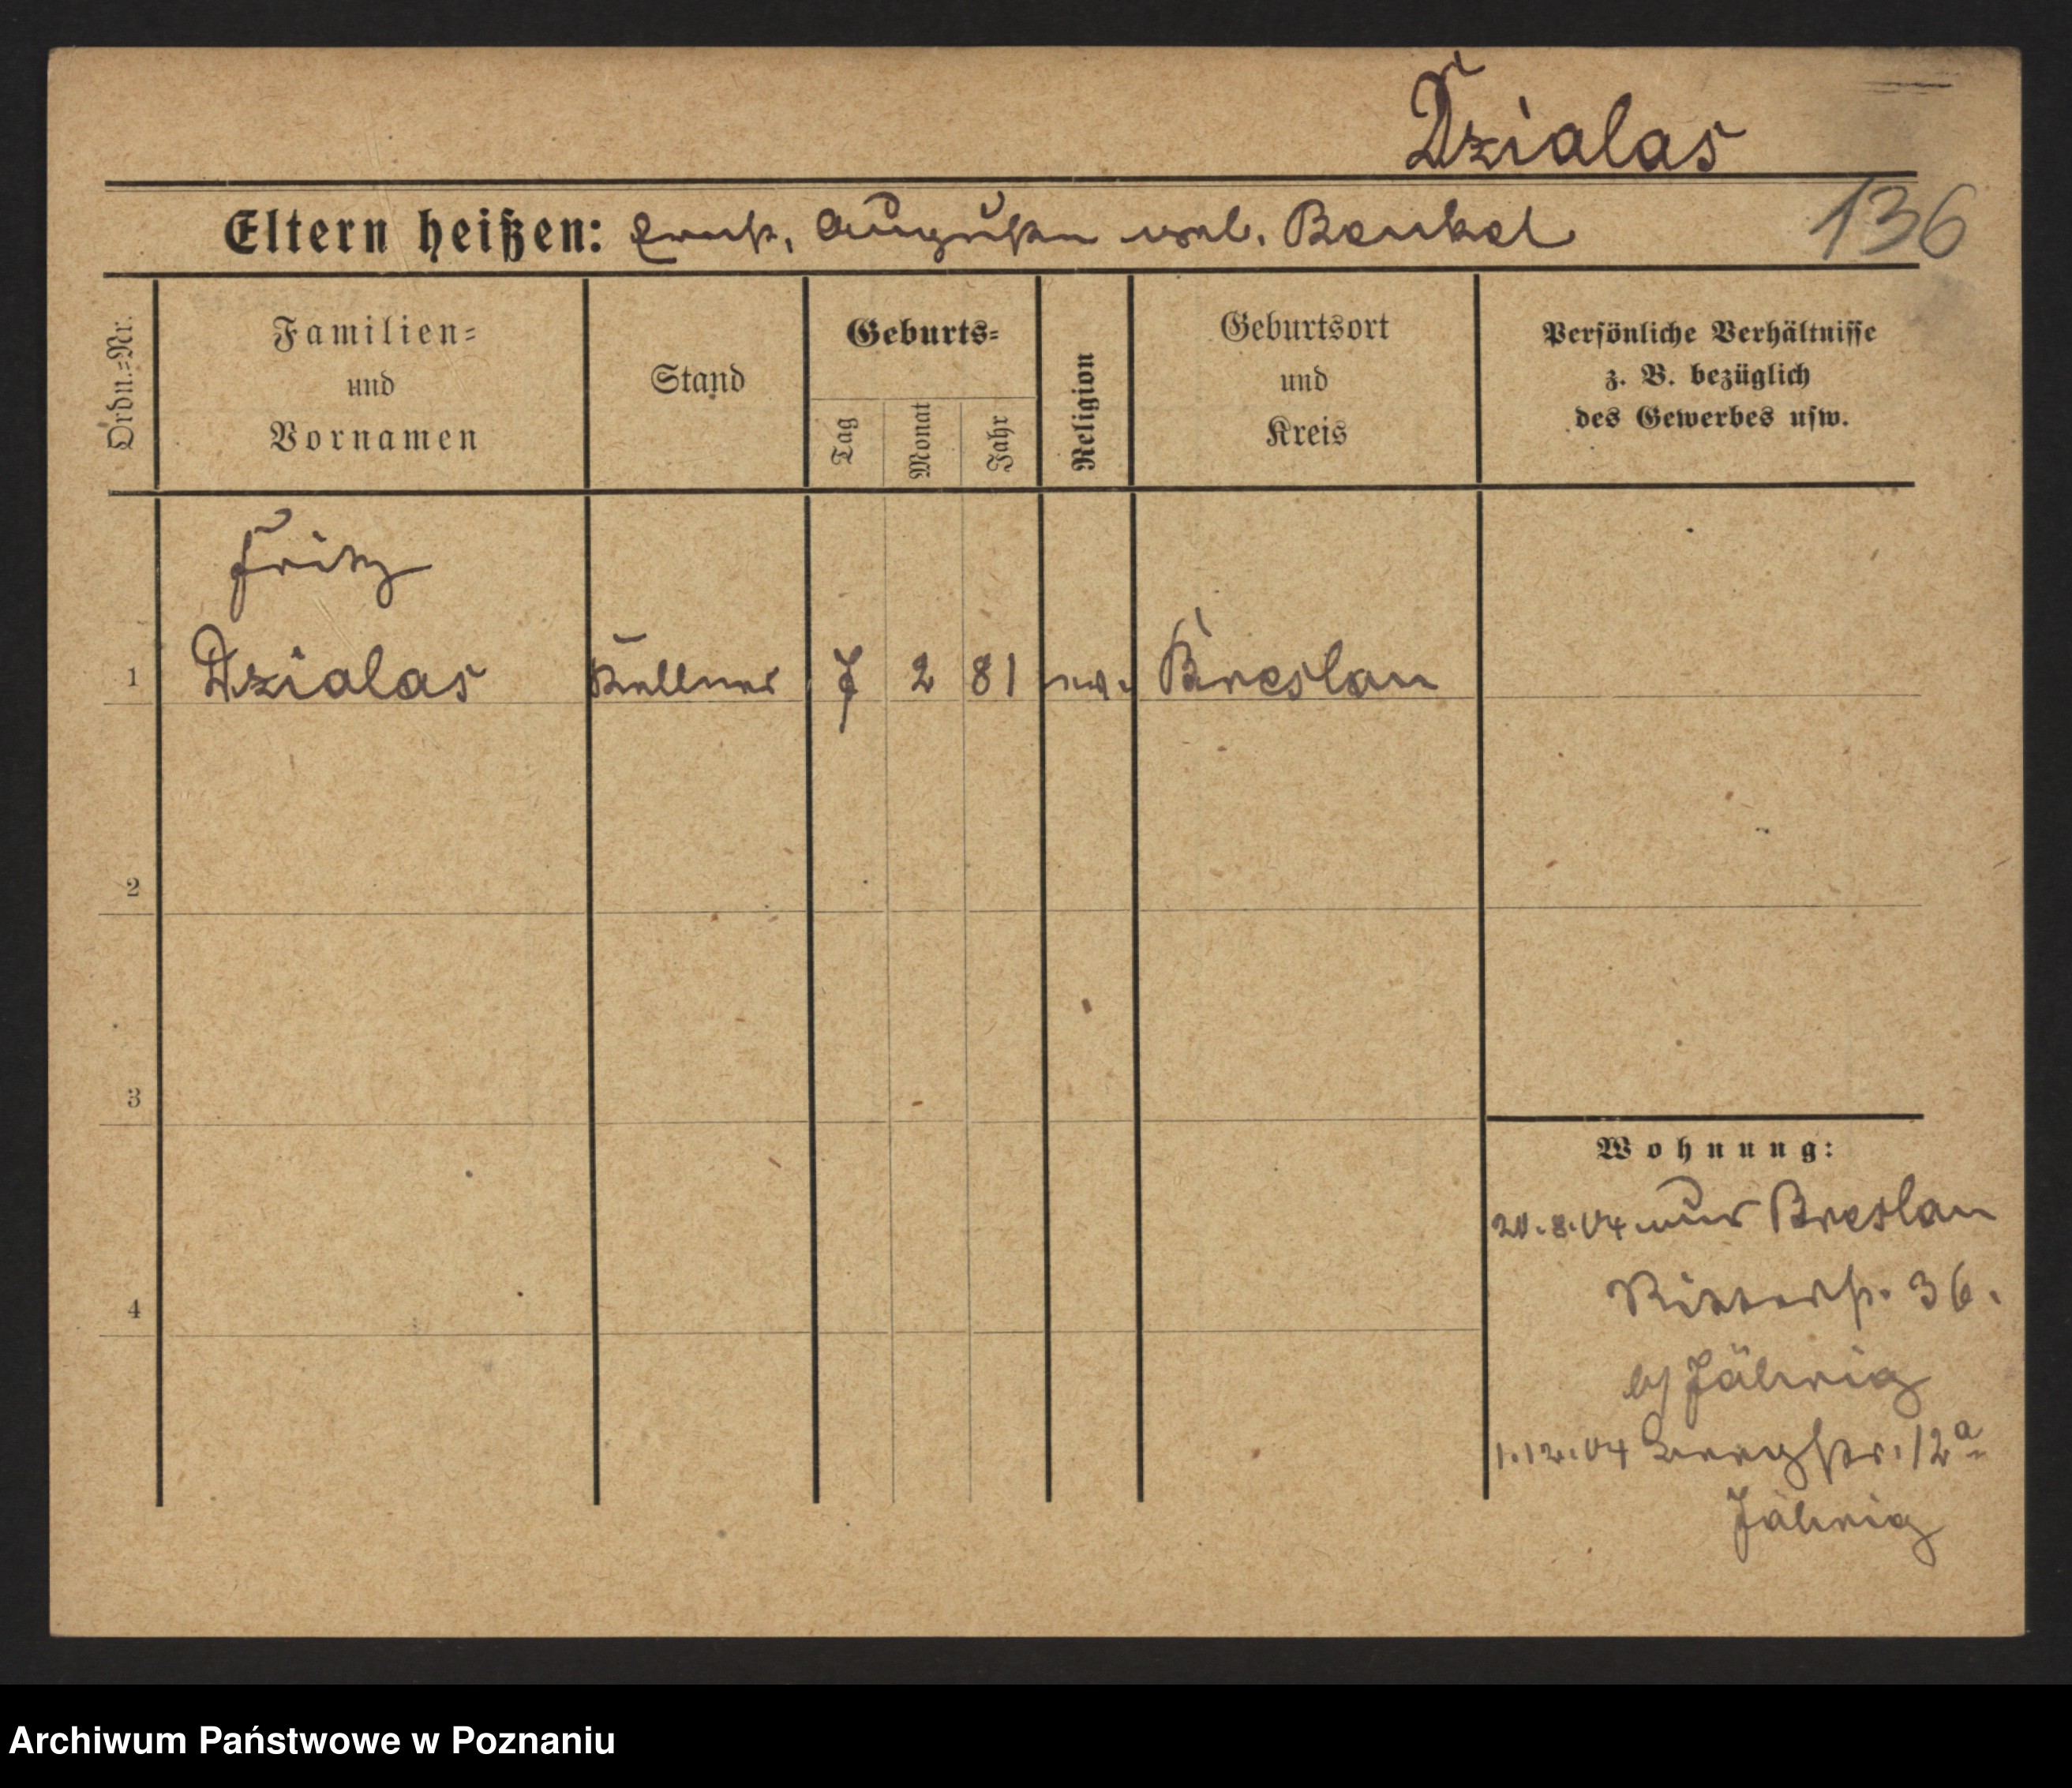 Dzialas
136
Eltern heißen: Ernst, Auguste geb. Benkel
Ordn.=Nr.
Familien=
und
Vornamen
Stand
Geburts=
Tag
Monat
Jahr
Religion
Geburtsort
und
Kreis
Persönliche Verhältnisse
z. B. bezüglich
des Gewerbes usw.
Fritz
1 Dzialas Kellner 7 2 81 ev. Breslau
2
3
4
Wohnung:
20.8.04 aus Breslau
Ritterst. 36.
b/ Jähnig
1.12.04 Bergstr. 12a
Jähnig
Archiwum Państwowe w Poznaniu